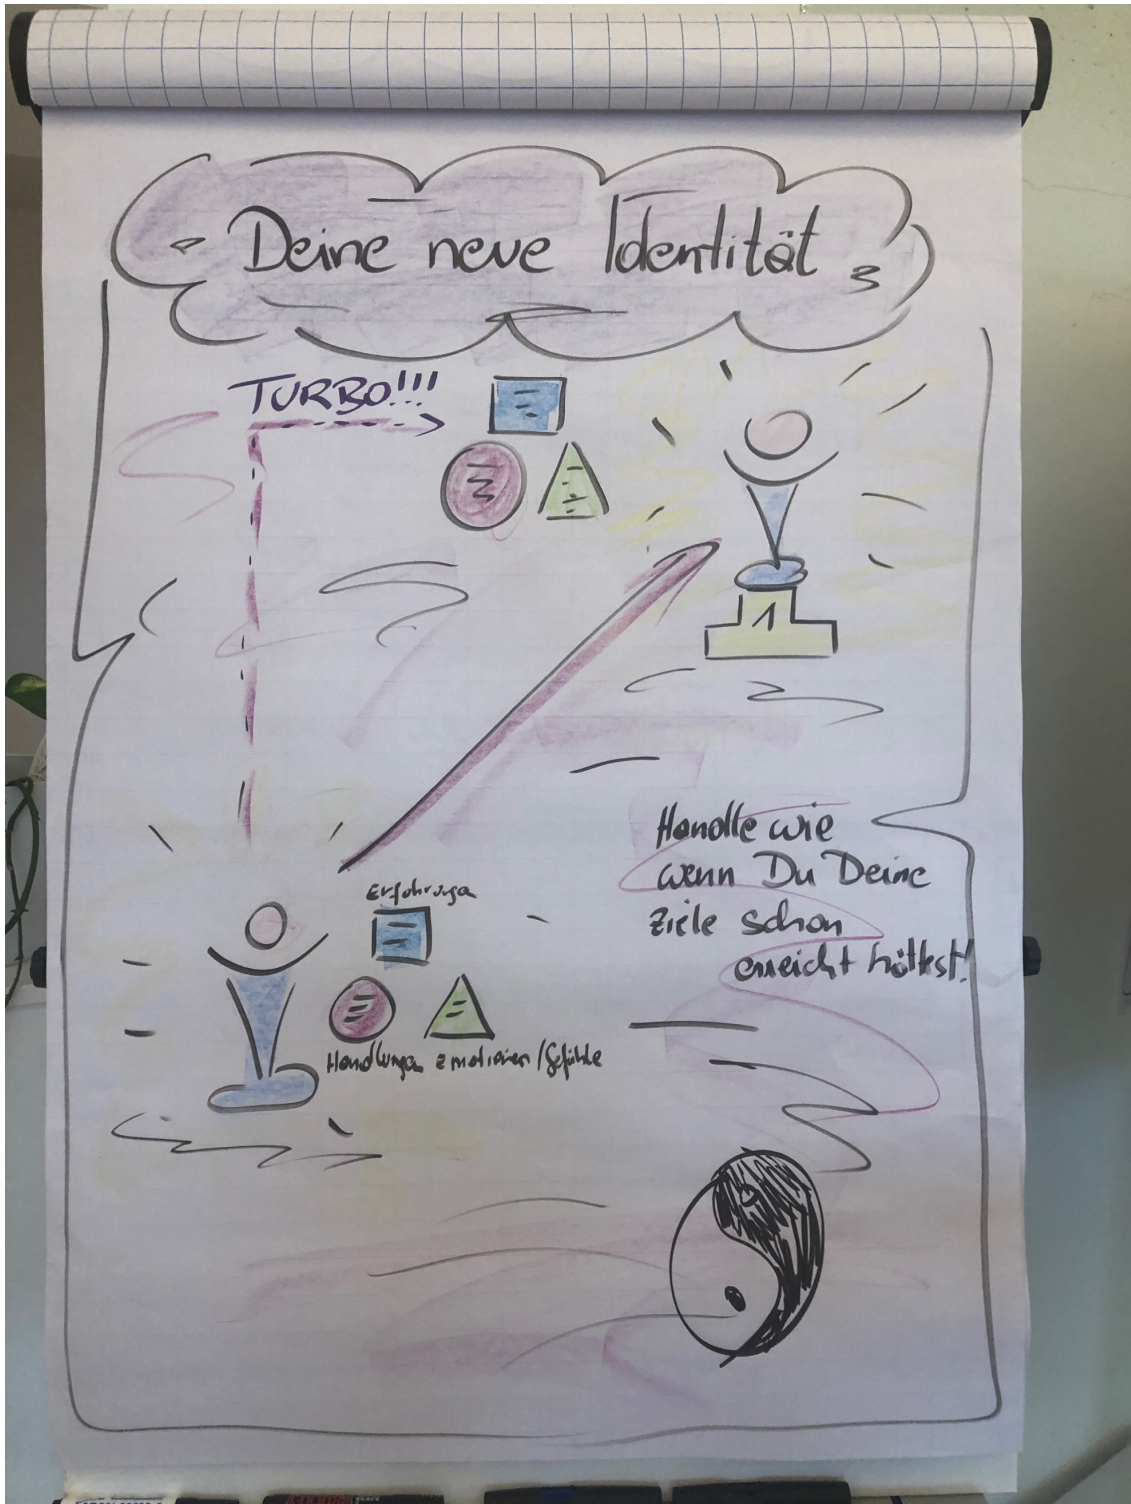 Deine neue Identität
TURBO!!!
1
Erfahrungen
Handlungen Emotionen/Gefühle
Handle wie
wenn Du Deine
Ziele schon
erreicht hättest!